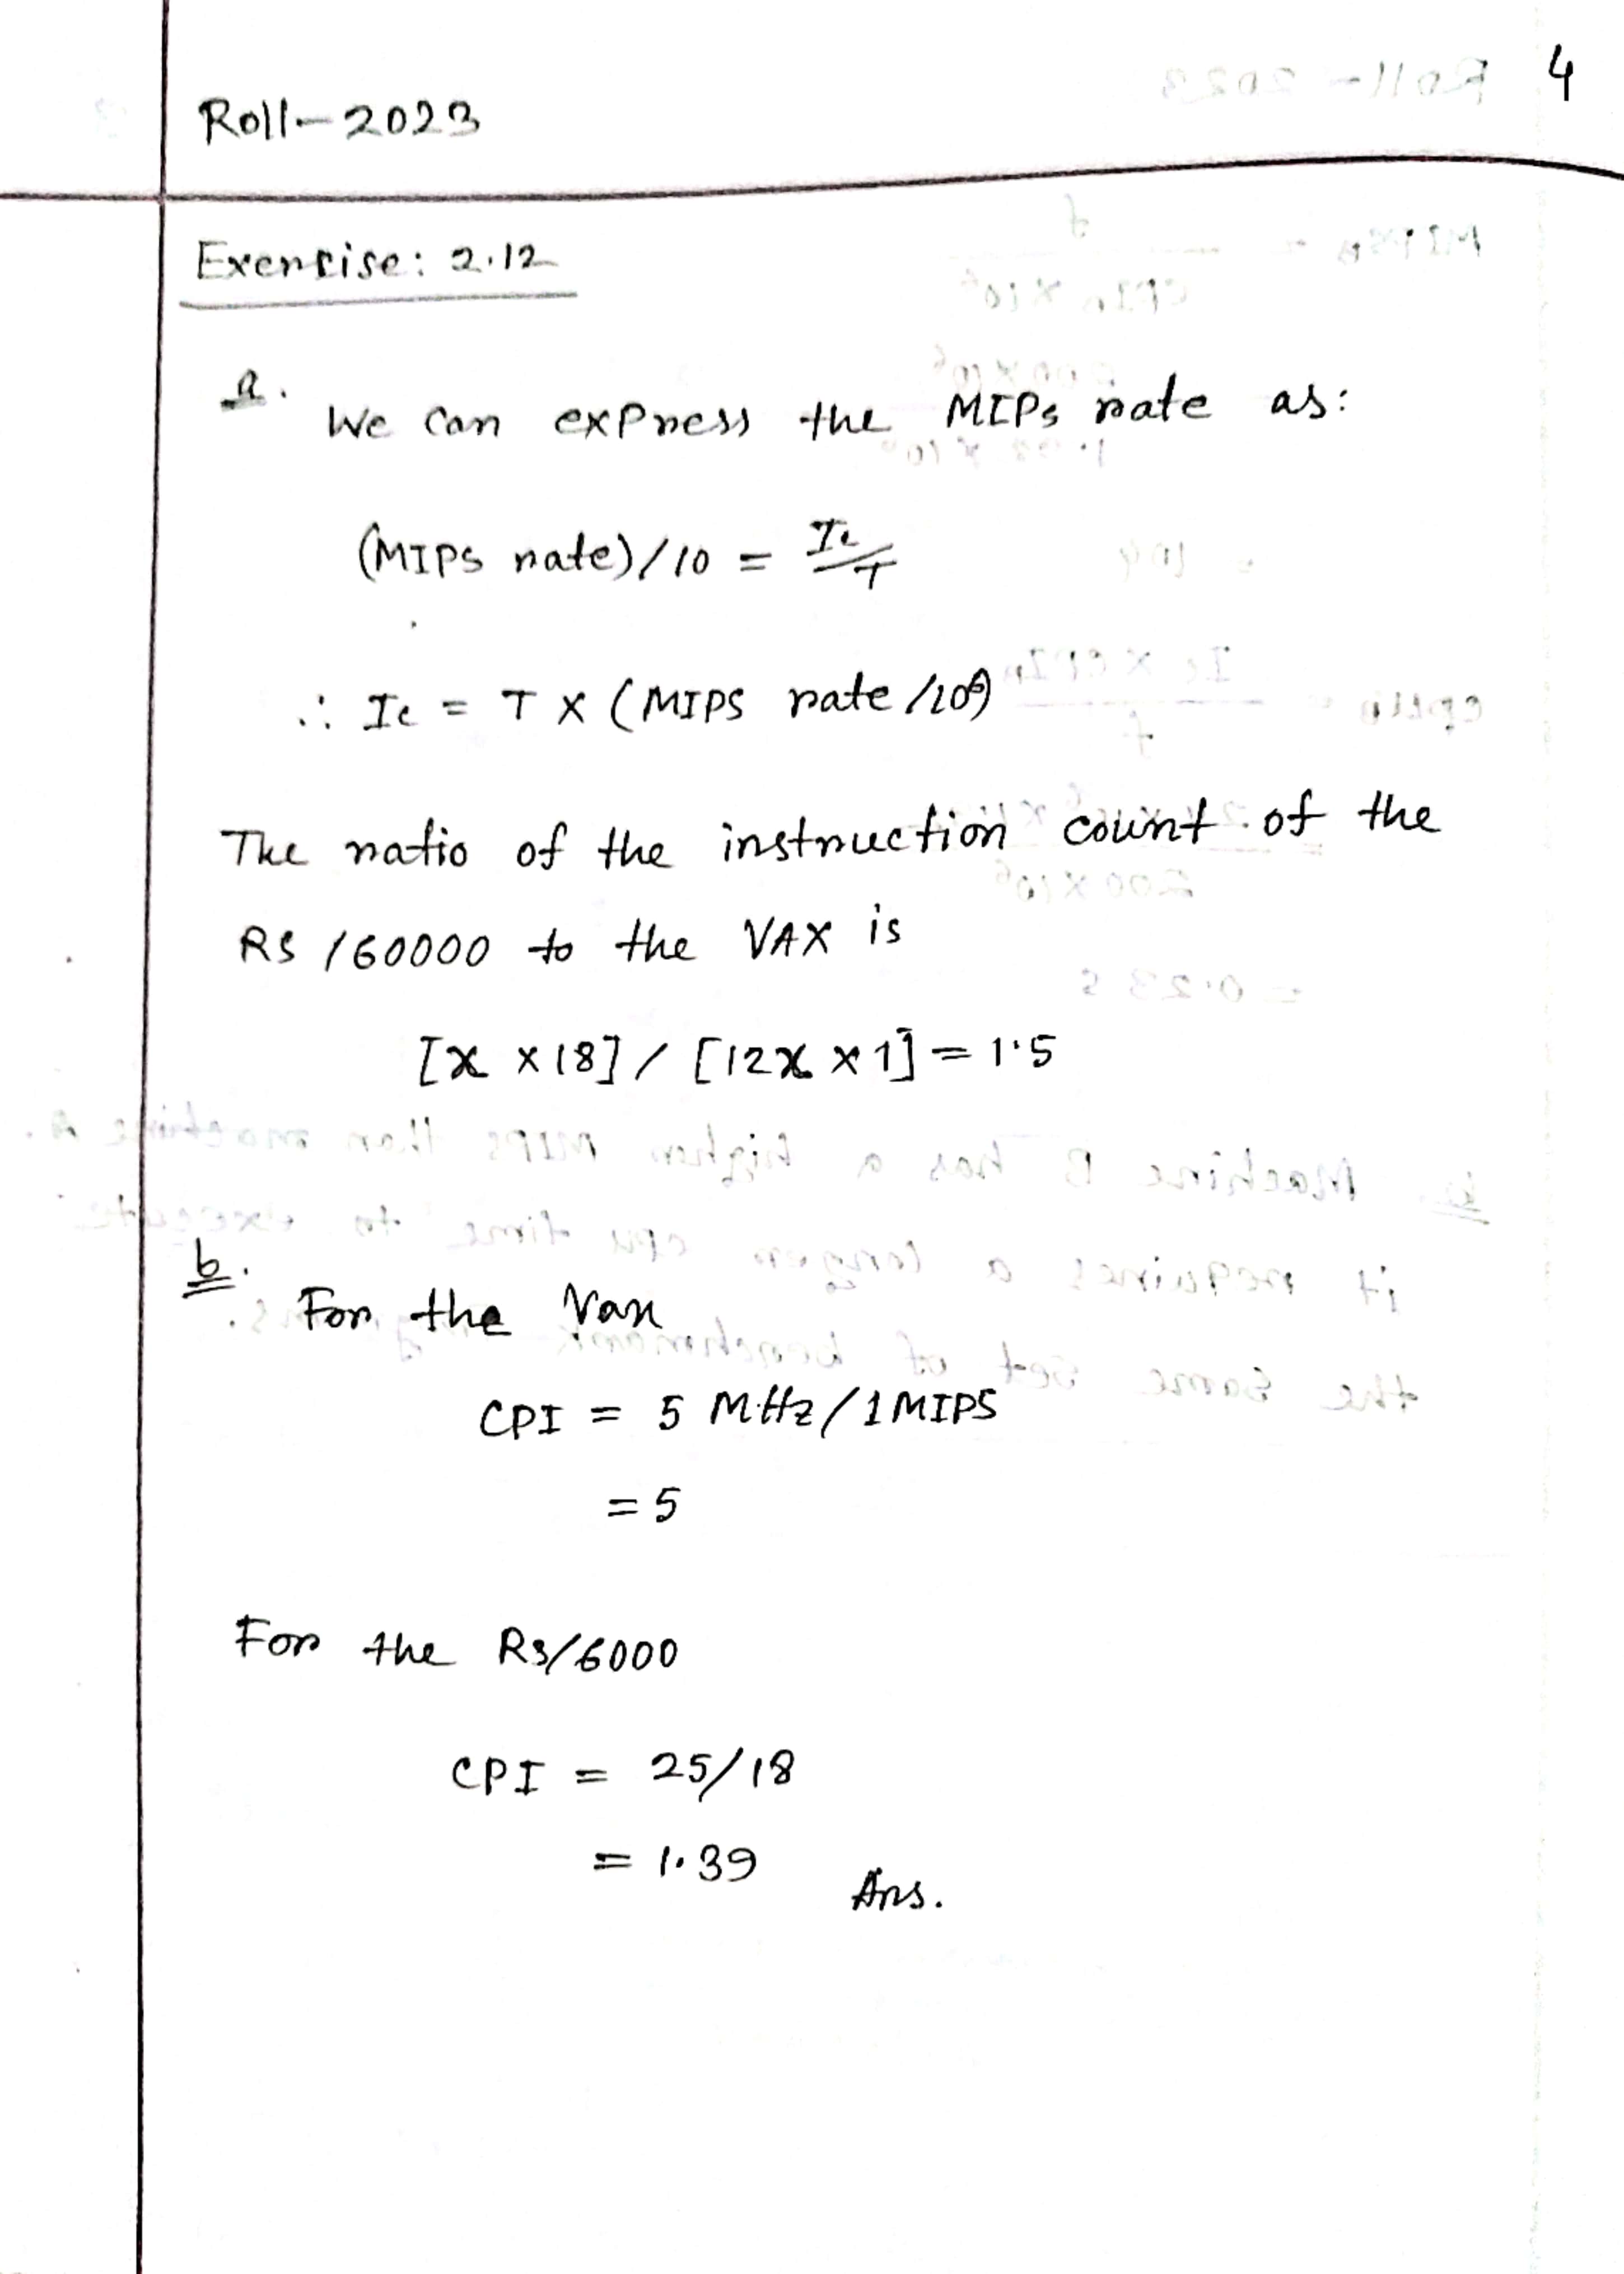 4
Roll-2023
Exercise: 2.12
a. We can express the MIPs rate as:
(MIPS rate)/10 = Ic/T
∴ Ic = T x (MIPS rate /10⁶)
The ratio of the instruction count of the
RS /60000 to the VAX is
[x x 18] / [12x x 1] = 1.5
b. For the Vax
CPI = 5 MHz/1MIPS
= 5
For the Rs/6000
CPI = 25/18
= 1.39 Ans.